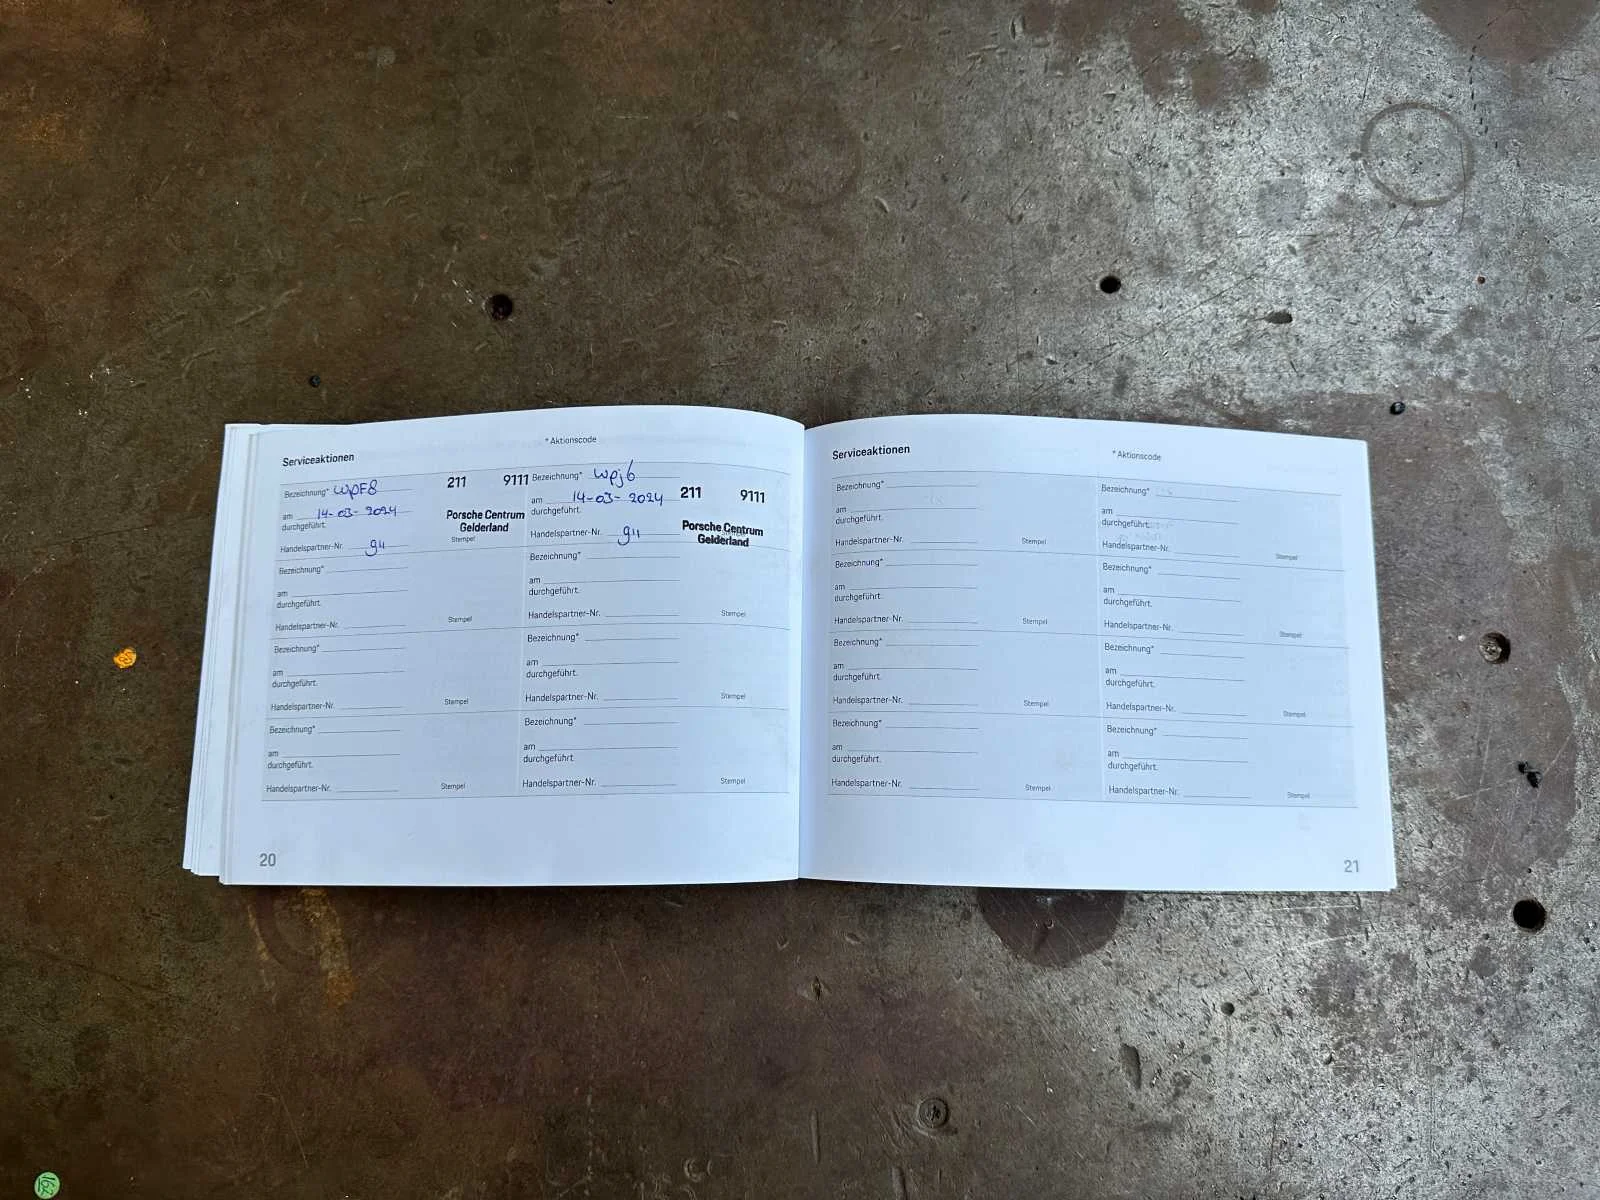 Serviceaktionen
* Aktionscode
Bezeichnung* WPF8
am 14-03-2024
durchgeführt.
Handelspartner-Nr. 911
211 9111
Porsche Centrum
Gelderland
Stempel
Bezeichnung* Wpj6
am 14-03-2024
durchgeführt.
Handelspartner-Nr. 911
211 9111
Porsche Centrum
Gelderland
Bezeichnung*
am
durchgeführt.
Handelspartner-Nr.
Stempel
Bezeichnung*
am
durchgeführt.
Handelspartner-Nr.
Stempel
Bezeichnung*
am
durchgeführt.
Handelspartner-Nr.
Stempel
Bezeichnung*
am
durchgeführt.
Handelspartner-Nr.
Stempel
Bezeichnung*
am
durchgeführt.
Handelspartner-Nr.
Stempel
Bezeichnung*
am
durchgeführt.
Handelspartner-Nr.
Stempel
20
Serviceaktionen
* Aktionscode
Bezeichnung*
am
durchgeführt.
Handelspartner-Nr.
Stempel
Bezeichnung*
am
durchgeführt.
Handelspartner-Nr.
Stempel
Bezeichnung*
am
durchgeführt.
Handelspartner-Nr.
Stempel
Bezeichnung*
am
durchgeführt.
Handelspartner-Nr.
Stempel
Bezeichnung*
am
durchgeführt.
Handelspartner-Nr.
Stempel
Bezeichnung*
am
durchgeführt.
Handelspartner-Nr.
Stempel
Bezeichnung*
am
durchgeführt.
Handelspartner-Nr.
Stempel
Bezeichnung*
am
durchgeführt.
Handelspartner-Nr.
Stempel
21